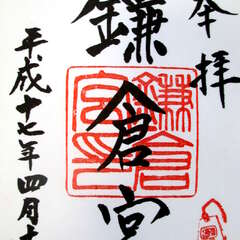 奉拝
鎌倉宮
平成十七年四月十